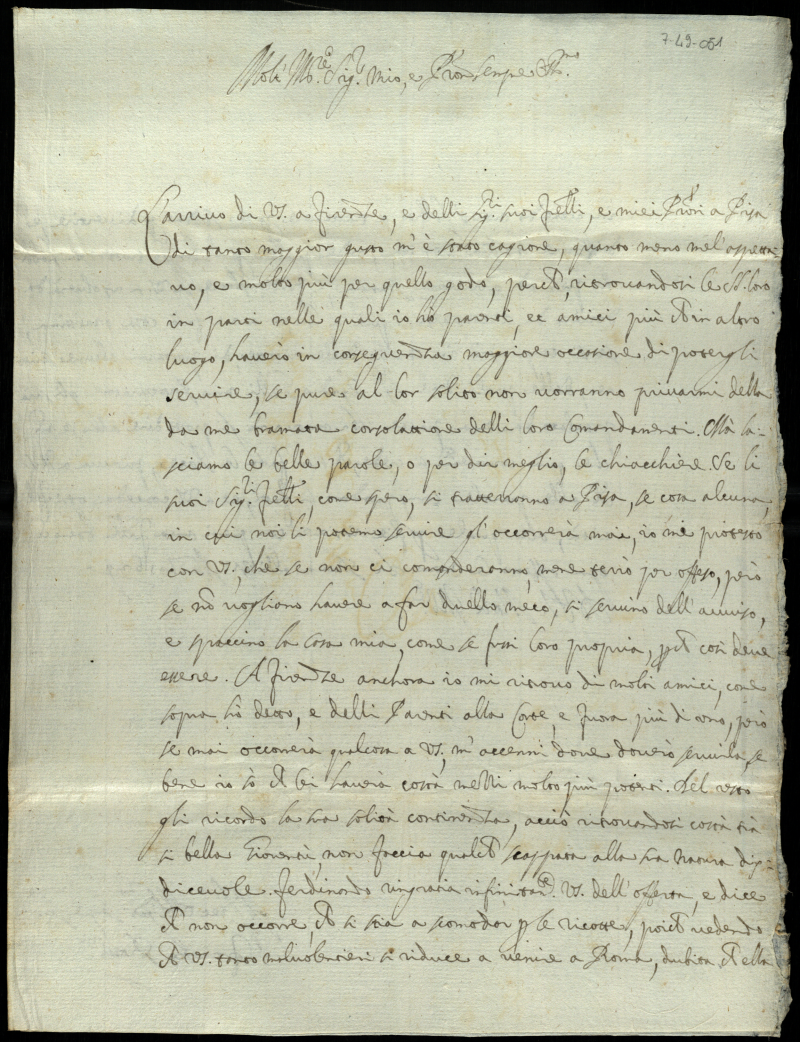 7-49-051
Molt' Ill.re Sig.r mio, e P.ron sempre
L'arriuo di VS. a Firenze, e delli Sig.ri suoi f.lli, e miei P.roni a Pisa
di tanto maggior gusto m'è stato cagione, quanto meno me l'aspetta-
uo, e molto più per quello godo, perche, ritrouandosi le SS. loro
in parti nelle quali io hò parenti, et amici più che in altro
luogo, hauerò in conseguenza maggiore occasione di potergli
seruire, se pure al lor solito non uorranno priuarmi della
da me bramata consolatione delli loro Comandamenti. Mà la-
sciamo le belle parole, o per dir meglio, le chiacchiere. Se li
suoi Sig.ri f.lli, come spero, si tratterranno a Pisa, se cosa alcuna,
in cui noi li potemo seruire gl'occorrerà mai, io mi protesto
con VS., che se non ci comanderanno, me ne terrò per offeso, però
se nõ uogliono hauere a far duello meco, si seruino dell'auuiso,
e spaccino la casa mia, come se fussi loro propria, perche così deue
essere. A Firenze anchora io mi ritrouo di molti amici, come
sopra hò detto, e delli Parenti alla Corte, e fuora più di uno, però
se mai occorrerà qualcosa a VS., m'accenni doue douerò seruirla, se
bene io sò che lei hauerà costà mezzi molto più potenti. Del resto
gli ricordo la sua solita continenza, acciò ritrouandosi costà trà
sì bella Giouentù, non faccia qualche scappata alla sua natura
diceuole. Ferdinando ringratia infinitam.e VS. dell'offerta, e dice
che non occorre, che si stia a scomodar per le ricotte, poiche uedendo
che VS. tanto maluolentieri si riduce a uenire a Roma, dubita che ella